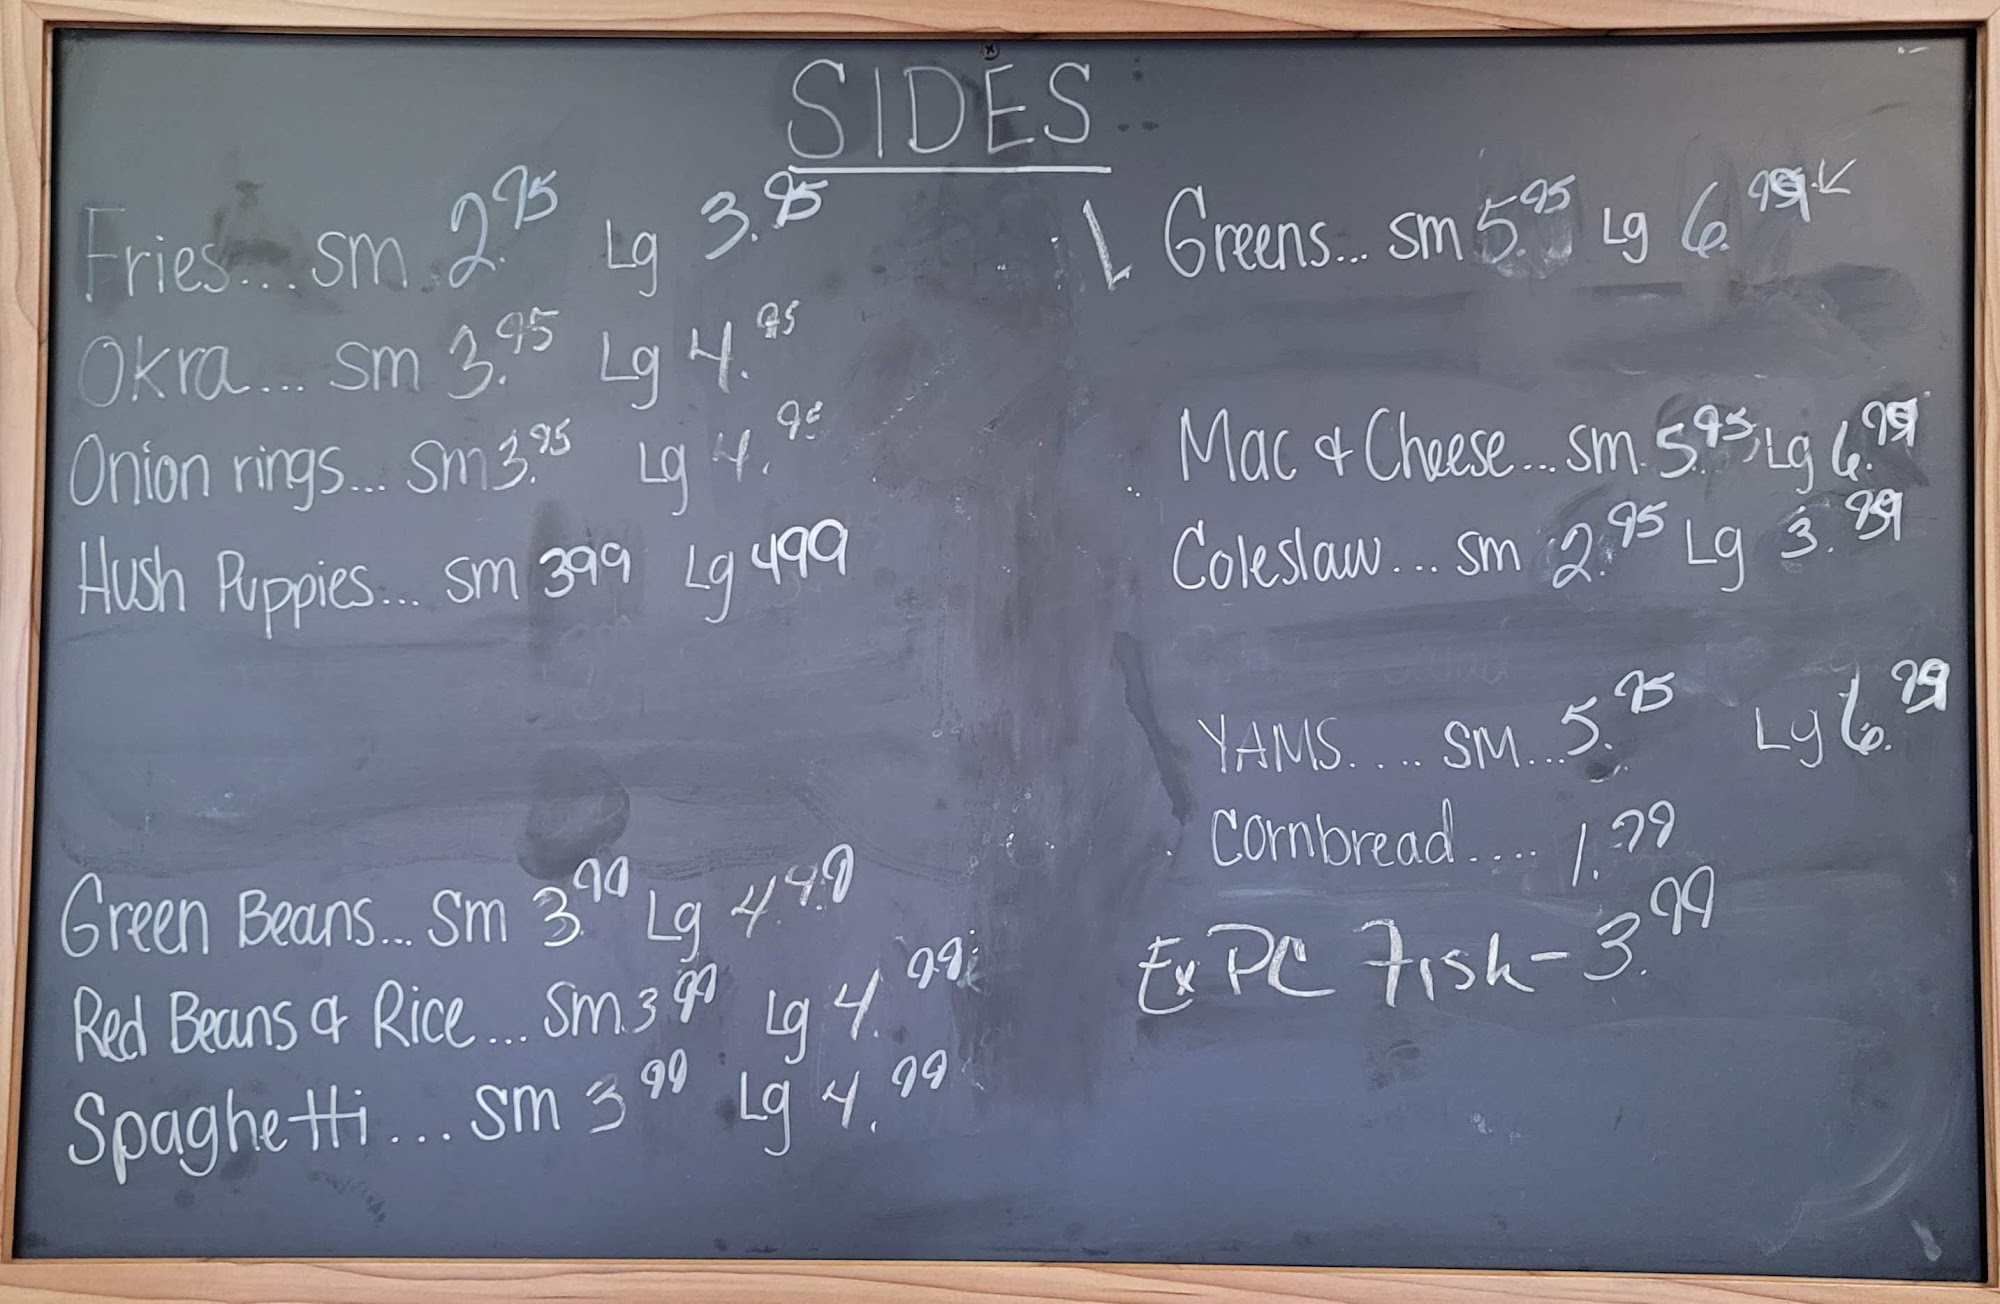 SIDES
Fries... sm 2.95 Lg 3.95
Okra.... sm 3.95 Lg 4.95
Onion rings... sm 3.95 Lg 4.95
Hush Puppies... sm 399 Lg 499
Green Beans... sm 3.99 Lg 4.99
Red Beans & Rice... sm 3 99 Lg 4.99
Spaghetti... sm 3 99 Lg 4.99
Greens... sm 5.95 Lg 6.99
Mac & Cheese... sm 5.95 Lg 6.99
Coleslaw... sm 2.95 Lg 3.99
YAMS.... SM... 5.95 Lg 6.99
Cornbread.... 1.99
Ex PC Fish - 3.99